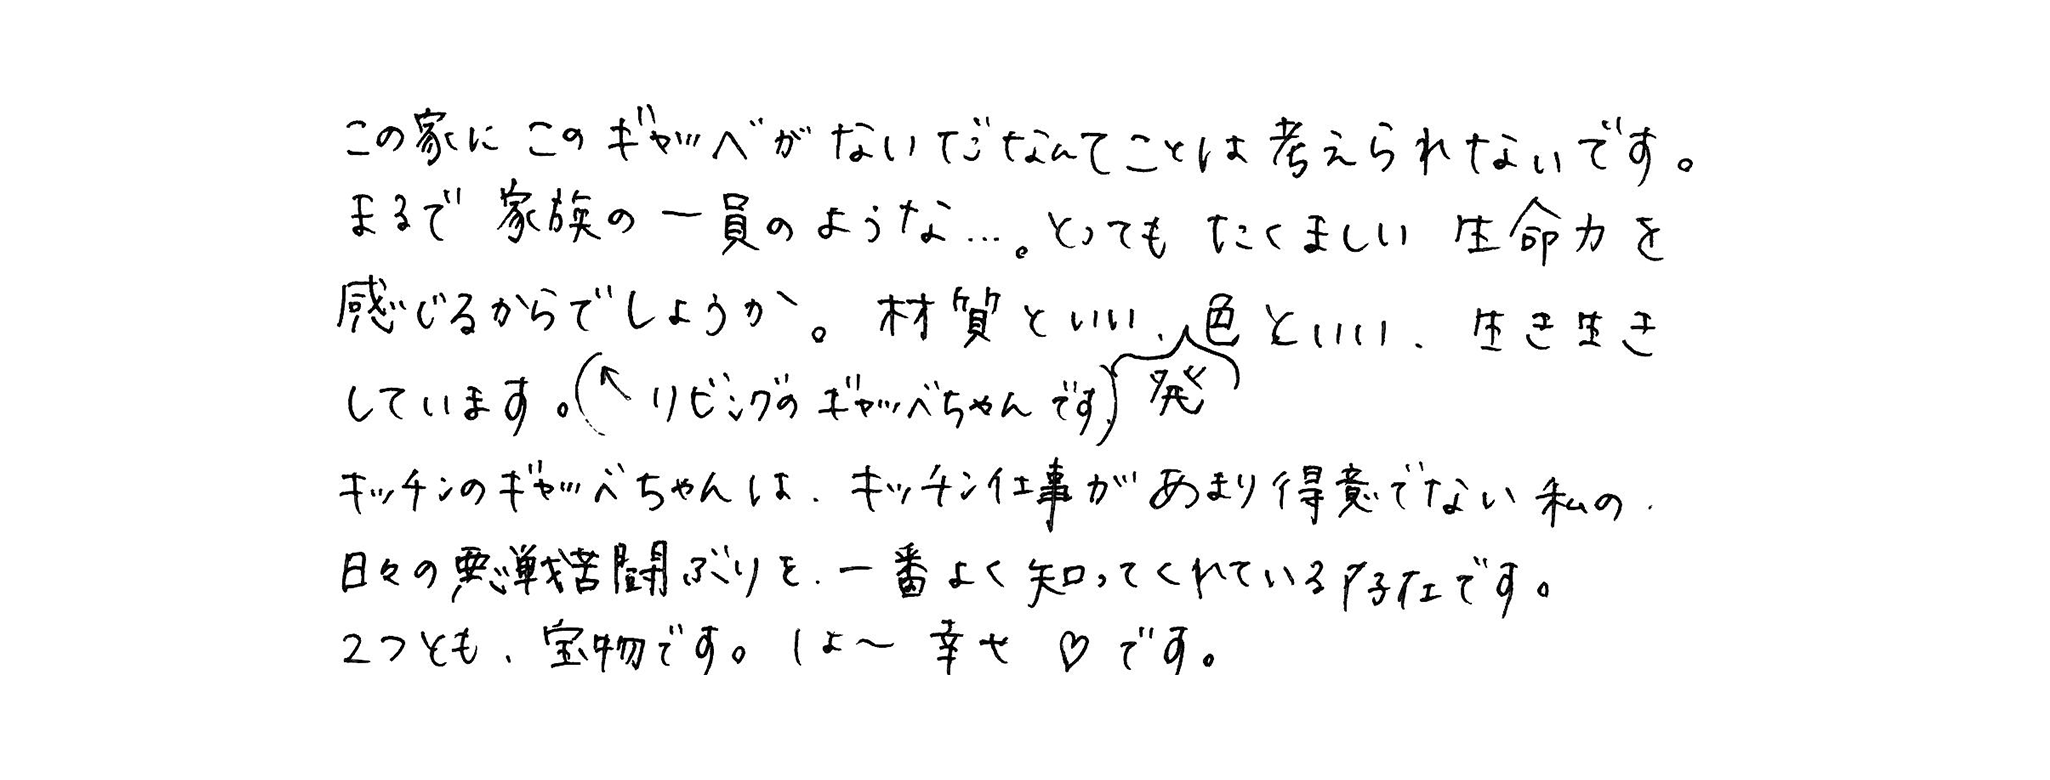 この家にこのギャッベがないだなんてことは考えられないです。
まるで家族の一員のような…。とってもたくましい生命力を
感じるからでしょうか。材質といい、発色といい、生き生き
しています。(↖リビングのギャッベちゃんです)
キッチンのギャッベちゃんは、キッチン仕事があまり得意でない私の、
日々の悪戦苦闘ぶりを、一番よく知ってくれている存在です。
2つとも、宝物です。はぁ〜幸せ♡です。